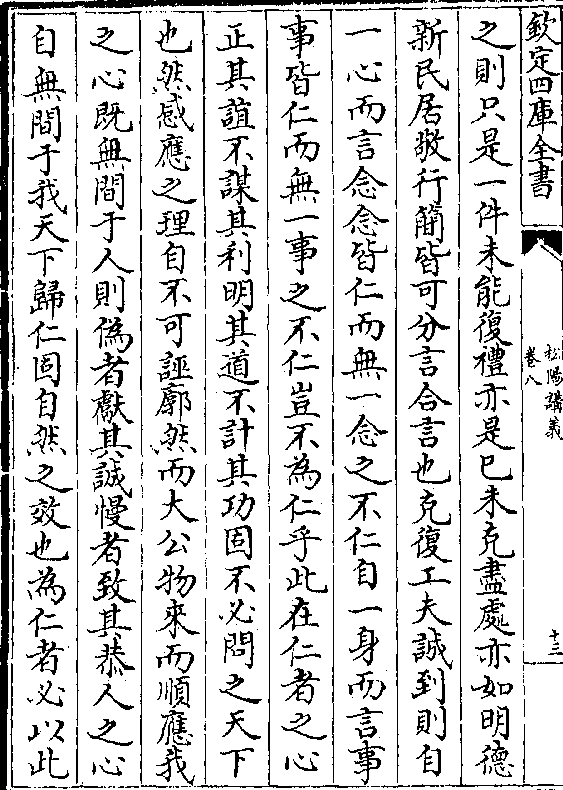 欽定四庫全書
松陽講義
卷八
十三
之則只是一件未能復禮亦是已未克盡處亦如明德
新民居敬行簡皆可分言合言也克復工夫誠到則自
一心而言念念皆仁而無一念之不仁自一身而言事
事皆仁而無一事之不仁豈不為仁乎此在仁者之心
正其誼不謀其利明其道不計其功固不必問之天下
也然感應之理自不可誣廓然而大公物來而順應我
之心既無間于人則偽者獻其誠慢者致其恭人之心
自無間于我天下歸仁固自然之效也為仁者必以此